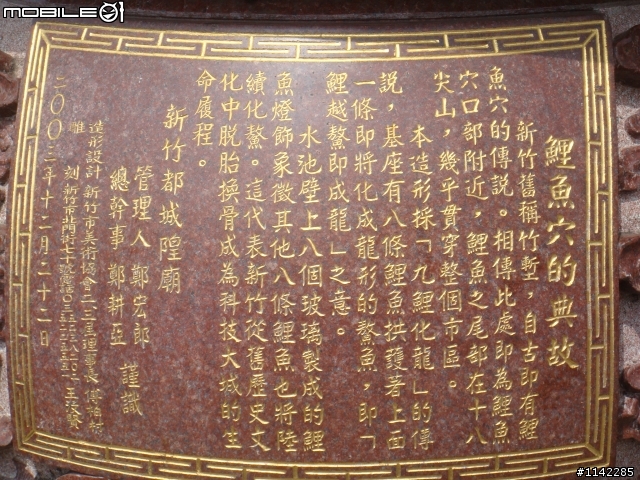 MOBILE01
鯉魚穴的典故
新竹舊稱竹塹，自古即有鯉
魚穴的傳說。相傳此處即為鯉魚
穴口部附近，鯉魚之尾部在十八
尖山，幾乎貫穿整個市區。
本造形採「九鯉化龍」的傳
說，基座有八條鯉魚拱護著上面
一條即將化成龍形的鰲魚，即「
鯉越鰲即成龍」之意。
水池壁上八個玻璃製成的鯉
魚燈飾象徵其他八條鯉魚也將陸
續化鰲。這代表新竹從舊歷史文
化中脱胎換骨成為科技大城的生
命履程。
新竹都城隍廟
管理人 鄭宏郎
總幹事 鄭耕亞 謹識
造形設計 新竹市美術協會二三屆理事長
雕 刻 新竹市北門街七十號
二00三年十二月二十二日
#1142285